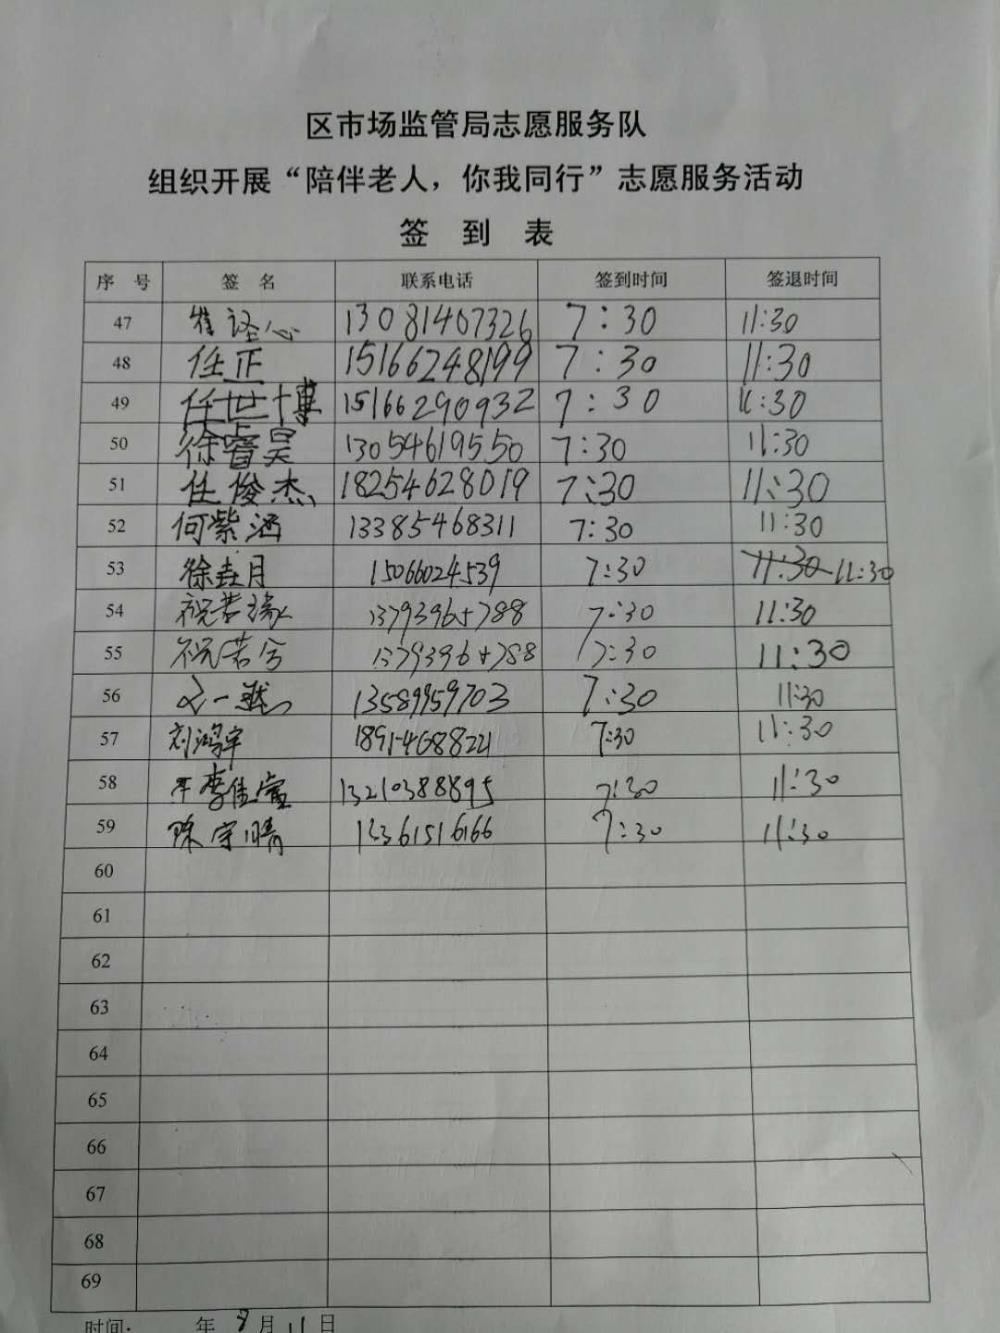 区市场监管局志愿服务队
组织开展“陪伴老人，你我同行”志愿服务活动
签 到 表
序 号 签 名 联系电话 签到时间 签退时间
47 13081407326 7:30 11:30
48 任正 15166248199 7:30 11:30
49 任世博 15166290932 7:30 11:30
50 徐睿昊 13054619550 7:30 11:30
51 任俊杰 18254628019 7:30 11:30
52 何紫涵 13385468311 7:30 11:30
53 徐垚月 15066024539 7:30 11:30 11:30
54 祝若缘 7:30 11:30
55 祝若兮 7:30 11:30
56 13589959703 7:30 11:30
57 刘鸿宇 18914688221 7:30 11:30
58 李佳蜜 13210388895 7:30 11:30
59 陈宇晴 13361516166 7:30 11:30
60
61
62
63
64
65
66
67
68
69
时间: 年 8 月 11 日